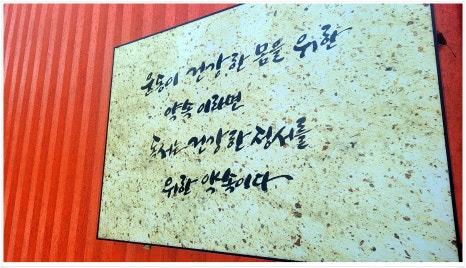 운동이 건강한 몸을 위한
약속이라면
독서는 건강한 정서를
위한 약속이다